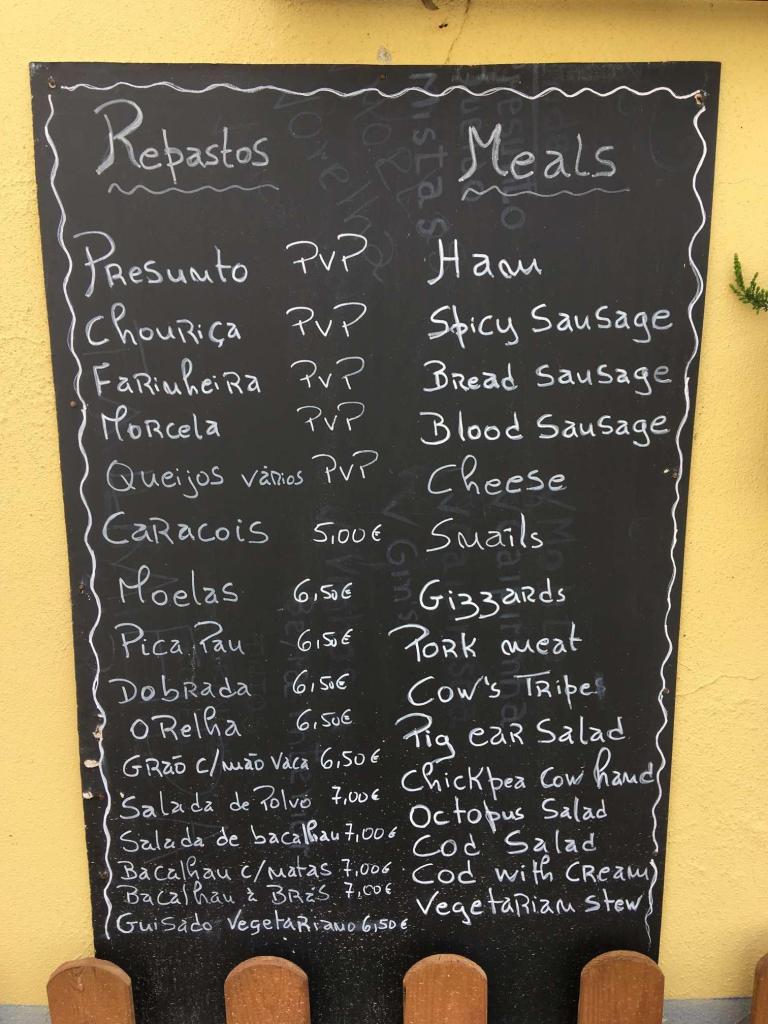 Repastos Meals
Presunto PVP Ham
Chouriça PVP Spicy Sausage
Farinheira PVP Bread Sausage
Morcela PVP Blood Sausage
Queijos vários PVP Cheese
Caracois 5,00€ Snails
Moelas 6,50€ Gizzards
Pica Pau 6,50€ Pork meat
Dobrada 6,50€ Cow's Tripes
Orelha 6,50€ Pig ear Salad
Grão c/mão Vaca 6,50€ Chickpea Cow hand
Salada de Polvo 7,00€ Octopus Salad
Salada de bacalhau 7,00€ Cod Salad
Bacalhau c/natas 7,00€ Cod with Cream
Bacalhau à Brás 7,00€
Guisado Vegetariano 6,50€ Vegetarian Stew